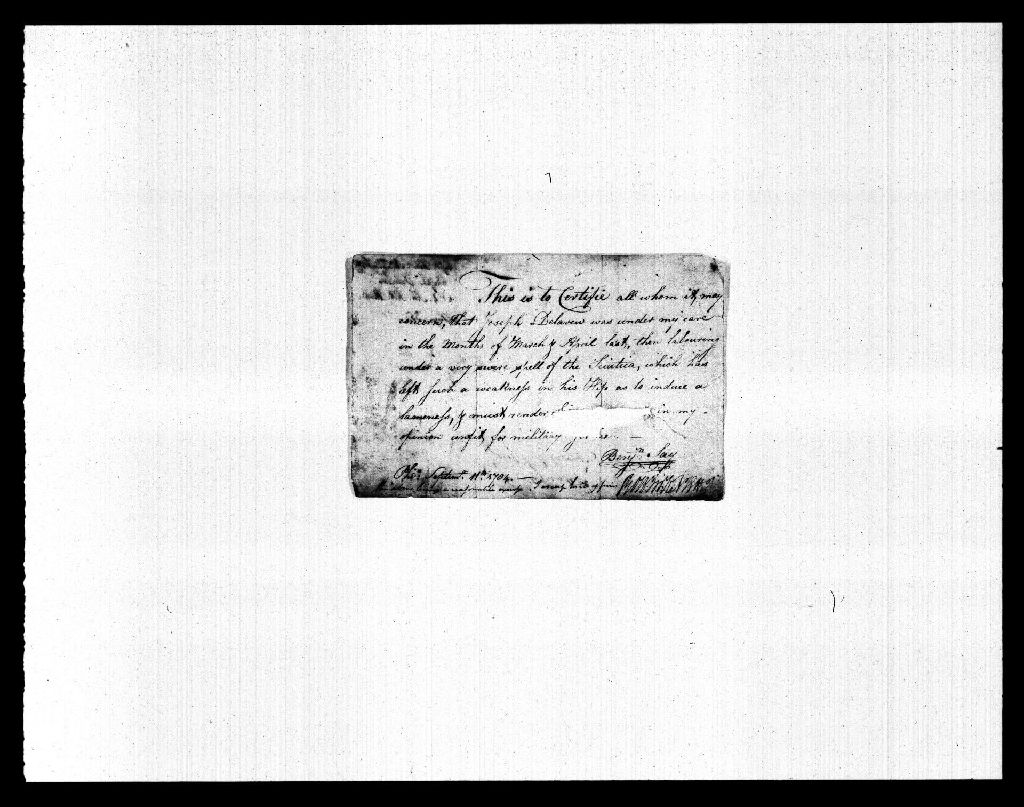 This is to Certifie all whom it may
concern, that Joseph Delaven was under my care
in the Months of March & April last, then labouring
under a very severe spell of the Sciatica, which has
left such a weakness in his Hip as to induce a
lameness, & must render in my
opinion unfit for military
Benjn. Say
Phila. Septemr. 11th. 1794.